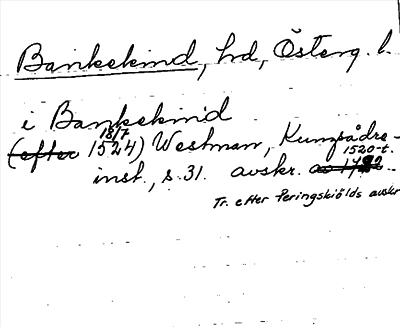 Bankekind, hd, Österg. l.
i Bankekind
18/7
(efter 1524) Westman, Kungsådre-
1520-t.
inst., s. 31. avskr.
Tr. efter Peringskiölds avskr